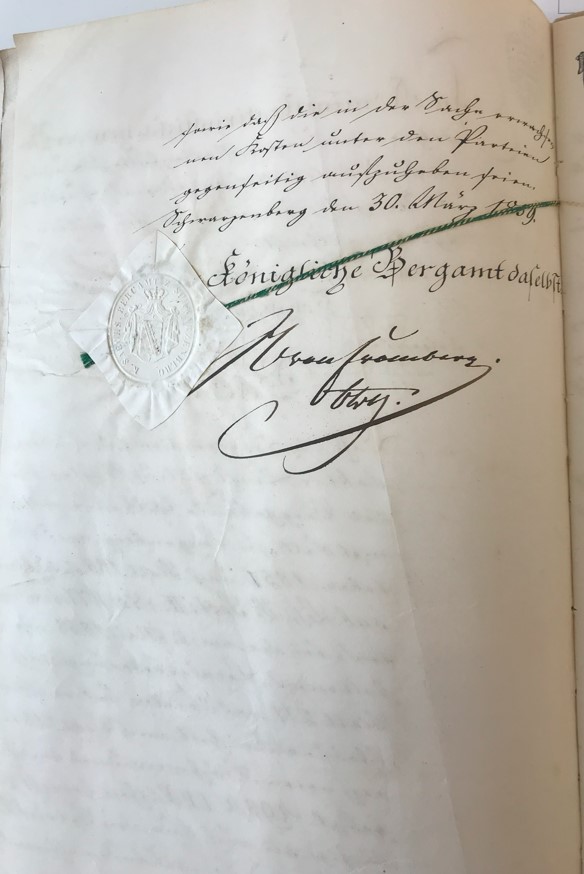 sowie daß die in der Sache erwachse-
nen Kosten unter den Parteien
gegenseitig aufzuheben seien.
Schwarzenberg den 30. März 1869.
Königliche Bergamt daselbst